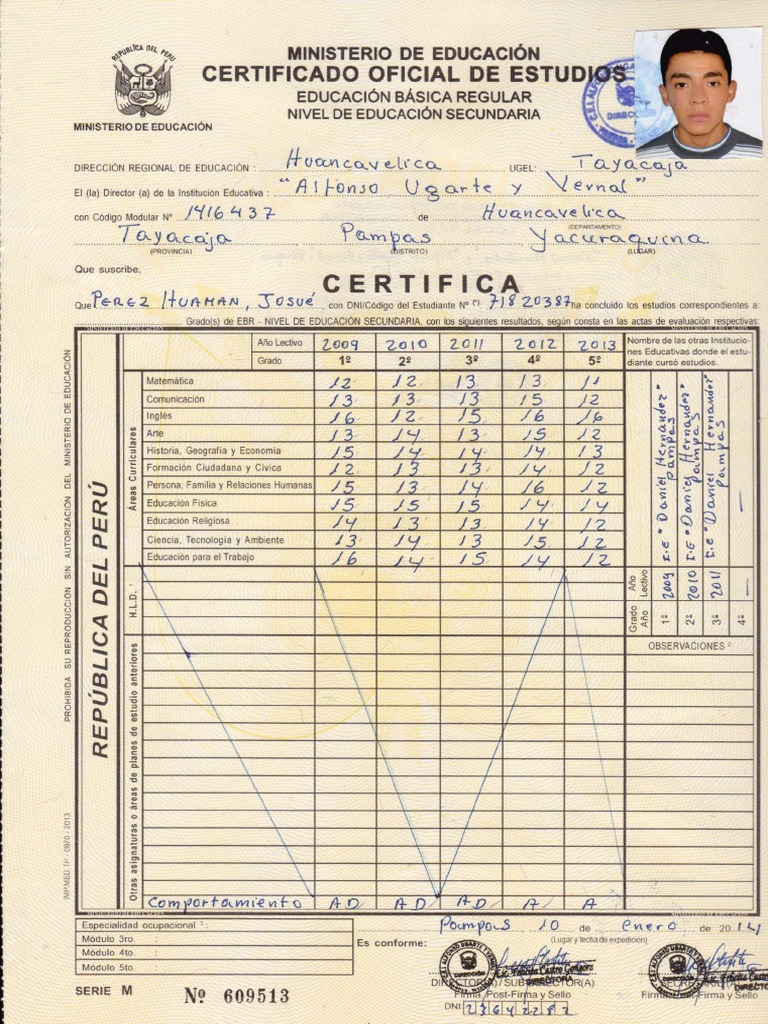 REPÚBLICA DEL PERÚ
MINISTERIO DE EDUCACIÓN
MINISTERIO DE EDUCACIÓN
CERTIFICADO OFICIAL DE ESTUDIOS
EDUCACIÓN BÁSICA REGULAR
NIVEL DE EDUCACIÓN SECUNDARIA
DIRECCIÓN REGIONAL DE EDUCACIÓN : Huancavelica UGEL: Tayacaja
El (la) Director (a) de la Institución Educativa : "Alfonso Ugarte y Vernal"
con Código Modular Nº 1416437 de Huancavelica
(DEPARTAMENTO)
Tayacaja Pampas Yacuraquina
(PROVINCIA) (DISTRITO) (LUGAR)
Que suscribe,
CERTIFICA
Que PEREZ HUAMAN, JOSUÉ, con DNI/Código del Estudiante Nº (*) 71820387 ha concluido los estudios correspondientes a:
Grado(s) de EBR - NIVEL DE EDUCACIÓN SECUNDARIA, con los siguientes resultados, según consta en las actas de evaluación respectivas:
Año Lectivo 2009 2010 2011 2012 2013
Grado 1º 2º 3º 4º 5º
Nombre de las otras Institucio-
nes Educativas donde el estu-
diante cursó estudios.
Áreas Curriculares
Matemática 12 12 13 13 11
Comunicación 13 13 13 15 12
Inglés 16 12 15 16 16
Arte 13 14 13 15 12
Historia, Geografía y Economía 15 14 14 14 13
Formación Ciudadana y Cívica 12 13 13 14 12
Persona, Familia y Relaciones Humanas 15 13 14 16 12
Educación Física 15 15 15 14 14
Educación Religiosa 14 13 13 14 12
Ciencia, Tecnología y Ambiente 13 14 13 15 12
Educación para el Trabajo 16 14 15 14 12
H.L.D. ¹
Otras asignaturas o áreas de planes de estudio anteriores
Comportamiento AD AD AD A A
Grado Año
Año Lectivo
1º 2009 I.E "Daniel Hernández" Pampas
2º 2010 I.E "Daniel Hernández" Pampas
3º 2011 I.E "Daniel Hernández" Pampas
4º — —
OBSERVACIONES ²
REPÚBLICA DEL PERÚ
PROHIBIDA SU REPRODUCCIÓN SIN AUTORIZACIÓN DEL MINISTERIO DE EDUCACIÓN
IMP.MED.TP - 0970 - 2013
Especialidad ocupacional ³ :
Módulo 3ro. :
Módulo 4to. :
Módulo 5to. :
Pampas 10 de enero de 2014
(Lugar y fecha de expedición)
Es conforme:
DIRECTOR(A) / SUBDIRECTOR(A)
Firma, Post-Firma y Sello
DNI
SERIE M Nº 609513